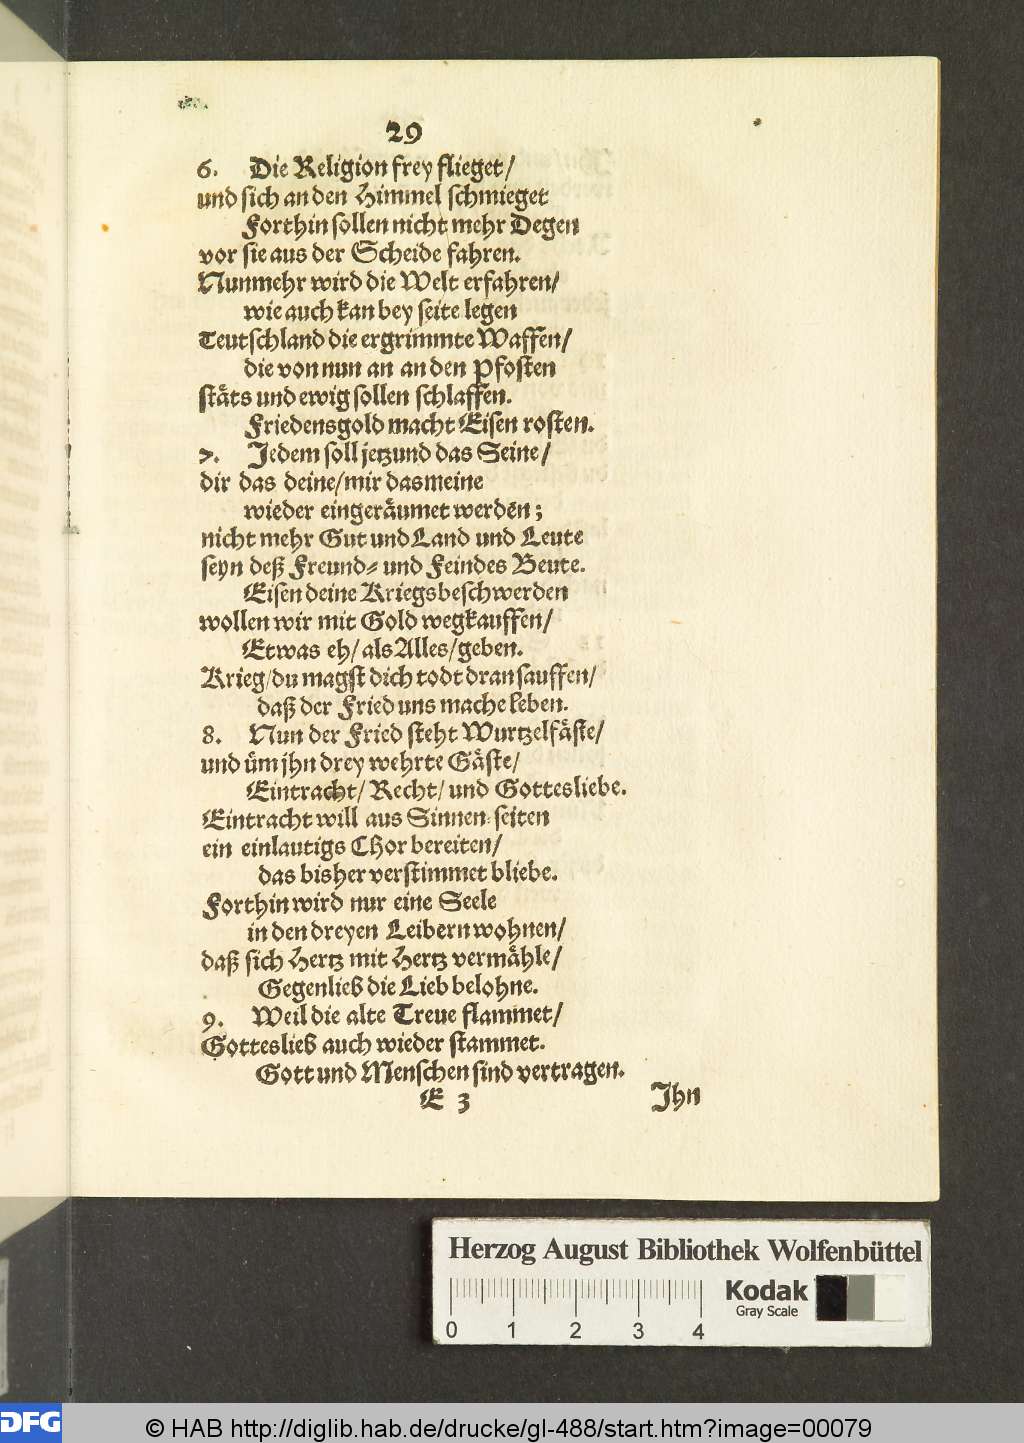 29
6. Die Religion frey flieget/
und sich an den Himmel schmieget
Forthin sollen nicht mehr Degen
vor sie aus der Scheide fahren.
Nunmehr wird die Welt erfahren/
wie auch kan bey seite legen
Teutschland die ergrimmte Waffen/
die von nun an an den Pfosten
stäts und ewig sollen schlaffen.
Friedensgold macht Eisen rosten.
7. Jedem soll jetzund das Seine/
dir das deine/mir das meine
wieder eingeräumet werden;
nicht mehr Gut und Land und Leute
seyn deß Freund- und Feindes Beute.
Eisen deine Kriegsbeschwerden
wollen wir mit Gold wegkauffen/
Etwas eh/als Alles/geben.
Krieg/du magst dich todt dran sauffen/
daß der Fried uns mache leben.
8. Nun der Fried steht Wurtzelfäste/
und üm jhn drey wehrte Gäste/
Eintracht/Recht/und Gottesliebe.
Eintracht will aus Sinnen-seiten
ein einlautigs Chor bereiten/
das bisher verstimmet bliebe.
Forthin wird nur eine Seele
in den dreyen Leibern wohnen/
daß sich Hertz mit Hertz vermähle/
Gegenlieb die Lieb belohne.
9. Weil die alte Treue flammet/
Gotteslieb auch wieder stammet.
Gott und Menschen sind vertragen.
E 3 Jhn
Herzog August Bibliothek Wolfenbüttel
Kodak
Gray Scale
0 1 2 3 4
DFG
© HAB http://diglib.hab.de/drucke/gl-488/start.htm?image=00079